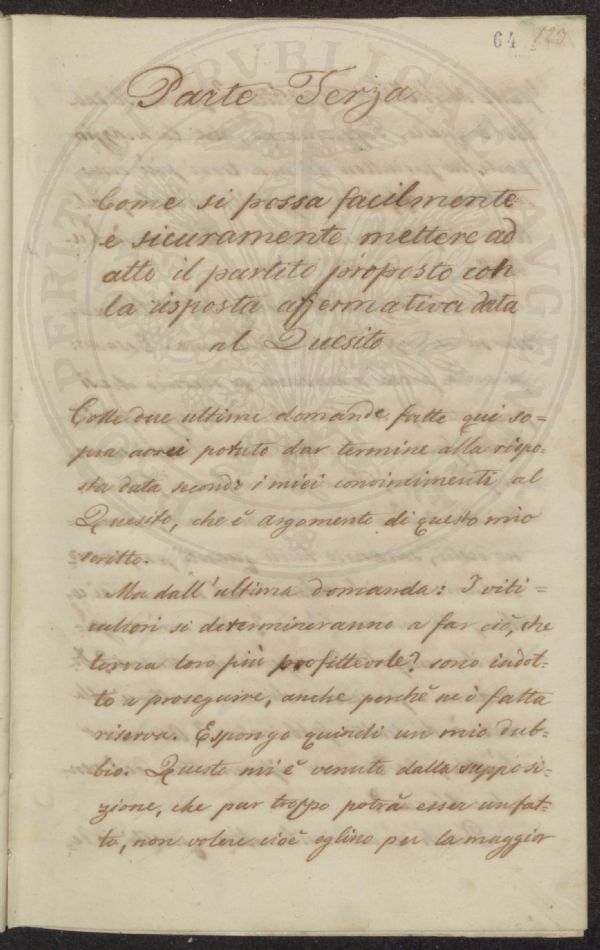 64 123
Parte Terza
Come si possa facilmente
e sicuramente mettere ad
atto il partito proposto con
la risposta affermativa data
al Quesito
Colle due ultime domande fatte qui so=
pra avrei potuto dar termine alla rispo=
sta data secondo i miei convincimenti al
Quesito, che è argomento di questo mio
scritto.
Ma dall'ultima domanda: I viti=
cultori si determineranno a far ciò, che
torna loro più profittevole? sono indot=
to a proseguire, anche perchè ne ò fatta
riserva. Espongo quindi un mio dub=
bio. Questo mi è venuto dalla supposi=
zione, che pur troppo potrà esser un fat=
to, non volere cioè eglino per la maggior